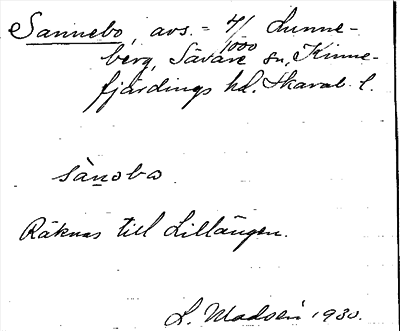 Sannebo, avs. = 4/1000 Lunne-
berg, Sävare sn, Kinne-
fjärdings hd. Skarab. l.
sànobo
Räknas till Lillängen.
L. Modén 1930.